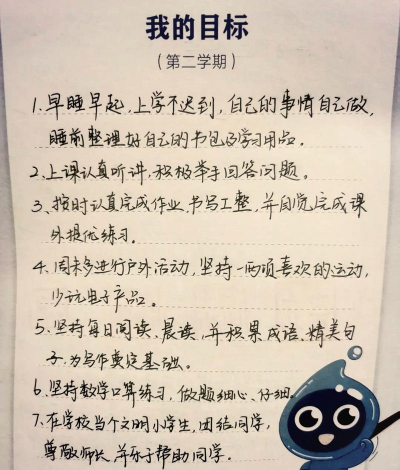 我的目标
（第二学期）
1.早睡早起,上学不迟到,自己的事情自己做,
睡前整理好自己的书包及学习用品。
2、上课认真听讲,积极举手回答问题。
3、按时认真完成作业,书写工整,并自觉完成课
外提优练习。
4、周末多进行户外活动,坚持一两项喜欢的运动,
少玩电子产品。
5、坚持每日阅读、晨读,并积累成语、精美句
子,为写作奠定基础。
6、坚持数学口算练习,做题细心、仔细。
7、在学校当个文明小学生,团结同学,
尊敬师长,并乐于帮助同学。